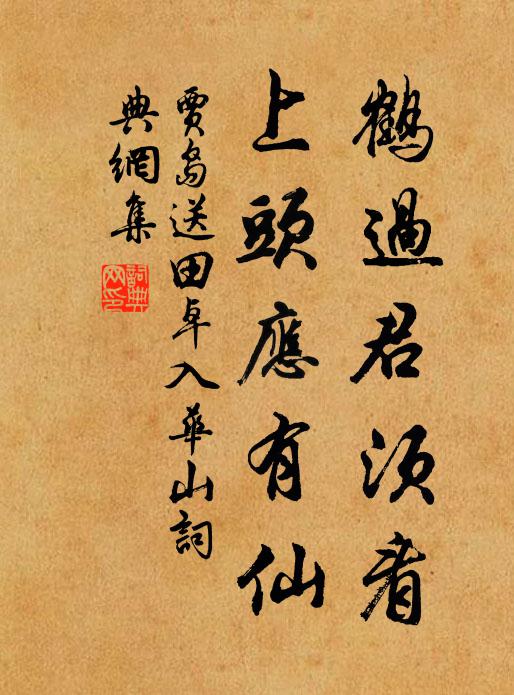 鶴過君須看
上頭應有仙
賈島送田卓入華山詞
典網集
詞典網印